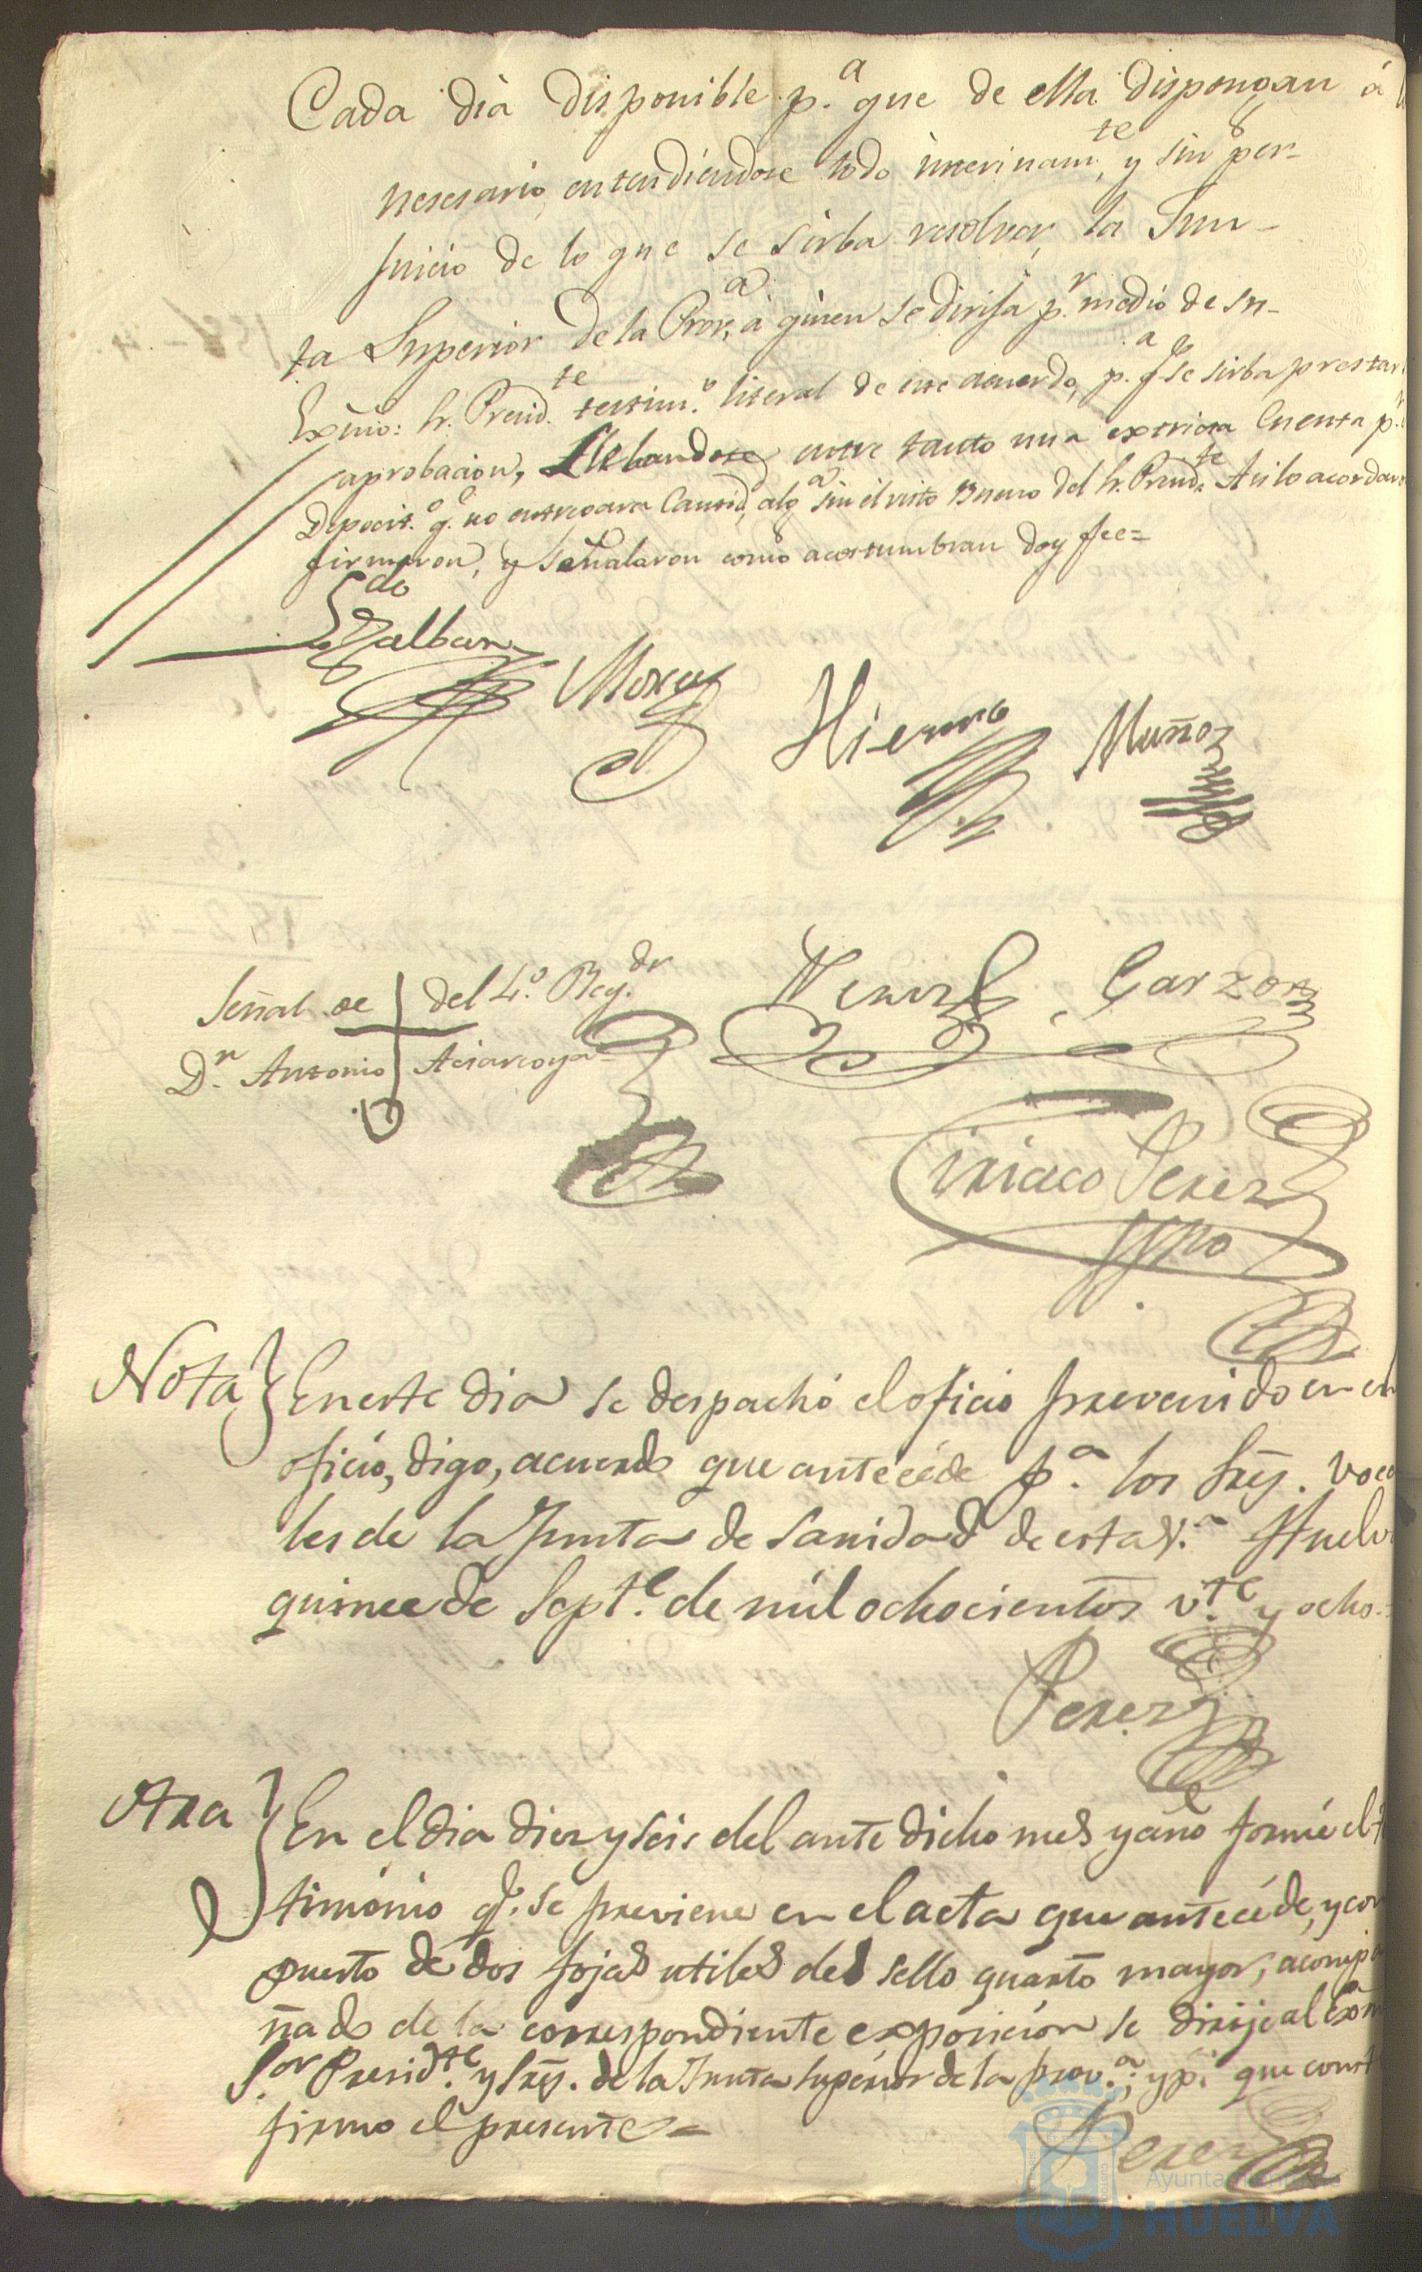 Cada dia disponible p.ª que de ella dispongan á
nesesario, entendiendose todo interinam.te, y sin per-
juicio de lo que se sirba resolver, la Jun-
ta Superior de la Prov.ª, á quien se dirija p.r medio de su
Exmo: Sr. Presid.te testim.º literal de este acuerdo, p.ª q.e se sirba prestar
aprobacion, Llebandose entre tanto una extricta Cuenta p.r
Deposit.º q.e no entregara Cantid. alg.ª sin el visto Bueno del Sr. Presid.te Asi lo acordaron
firmaron, y señalaron como acostumbran doy fee=
L.do
Zalbar
Mora
Hierro
Muñoz
Señal de del 4.º Reg.dr
D.n Antonio
Garzon
Ciriaco Perez
Nota } En este dia se despachó el oficio prevenido en el
oficio, digo, acuerdo que antecéde p.ª los Sres. Voca
les de la Junta de Sanidad de esta V.ª Huelva
quince de Sept.e de mil ochocientos v.te y ocho.=
Perez
Otra } En el dia diez y seis del ante dicho mes y año formé el t
timónio q.e se previene en el acta que antecéde, y com
puesto de dos fojas utiles del sello quarto mayor, acompa
ñado de la correspondiente exposicion se dirije al Exmo
S.or Presid.te y Sres. de la Junta Superior de la prov.ª; y p.r que const
firmo el presente=
Perez
Ayuntamiento de
HUELVA